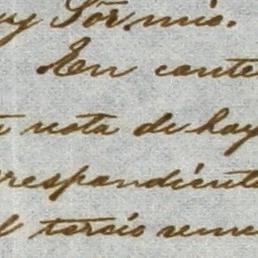 uy Sör mio.
En conte
nota de hoy
respondiente
tercio seme